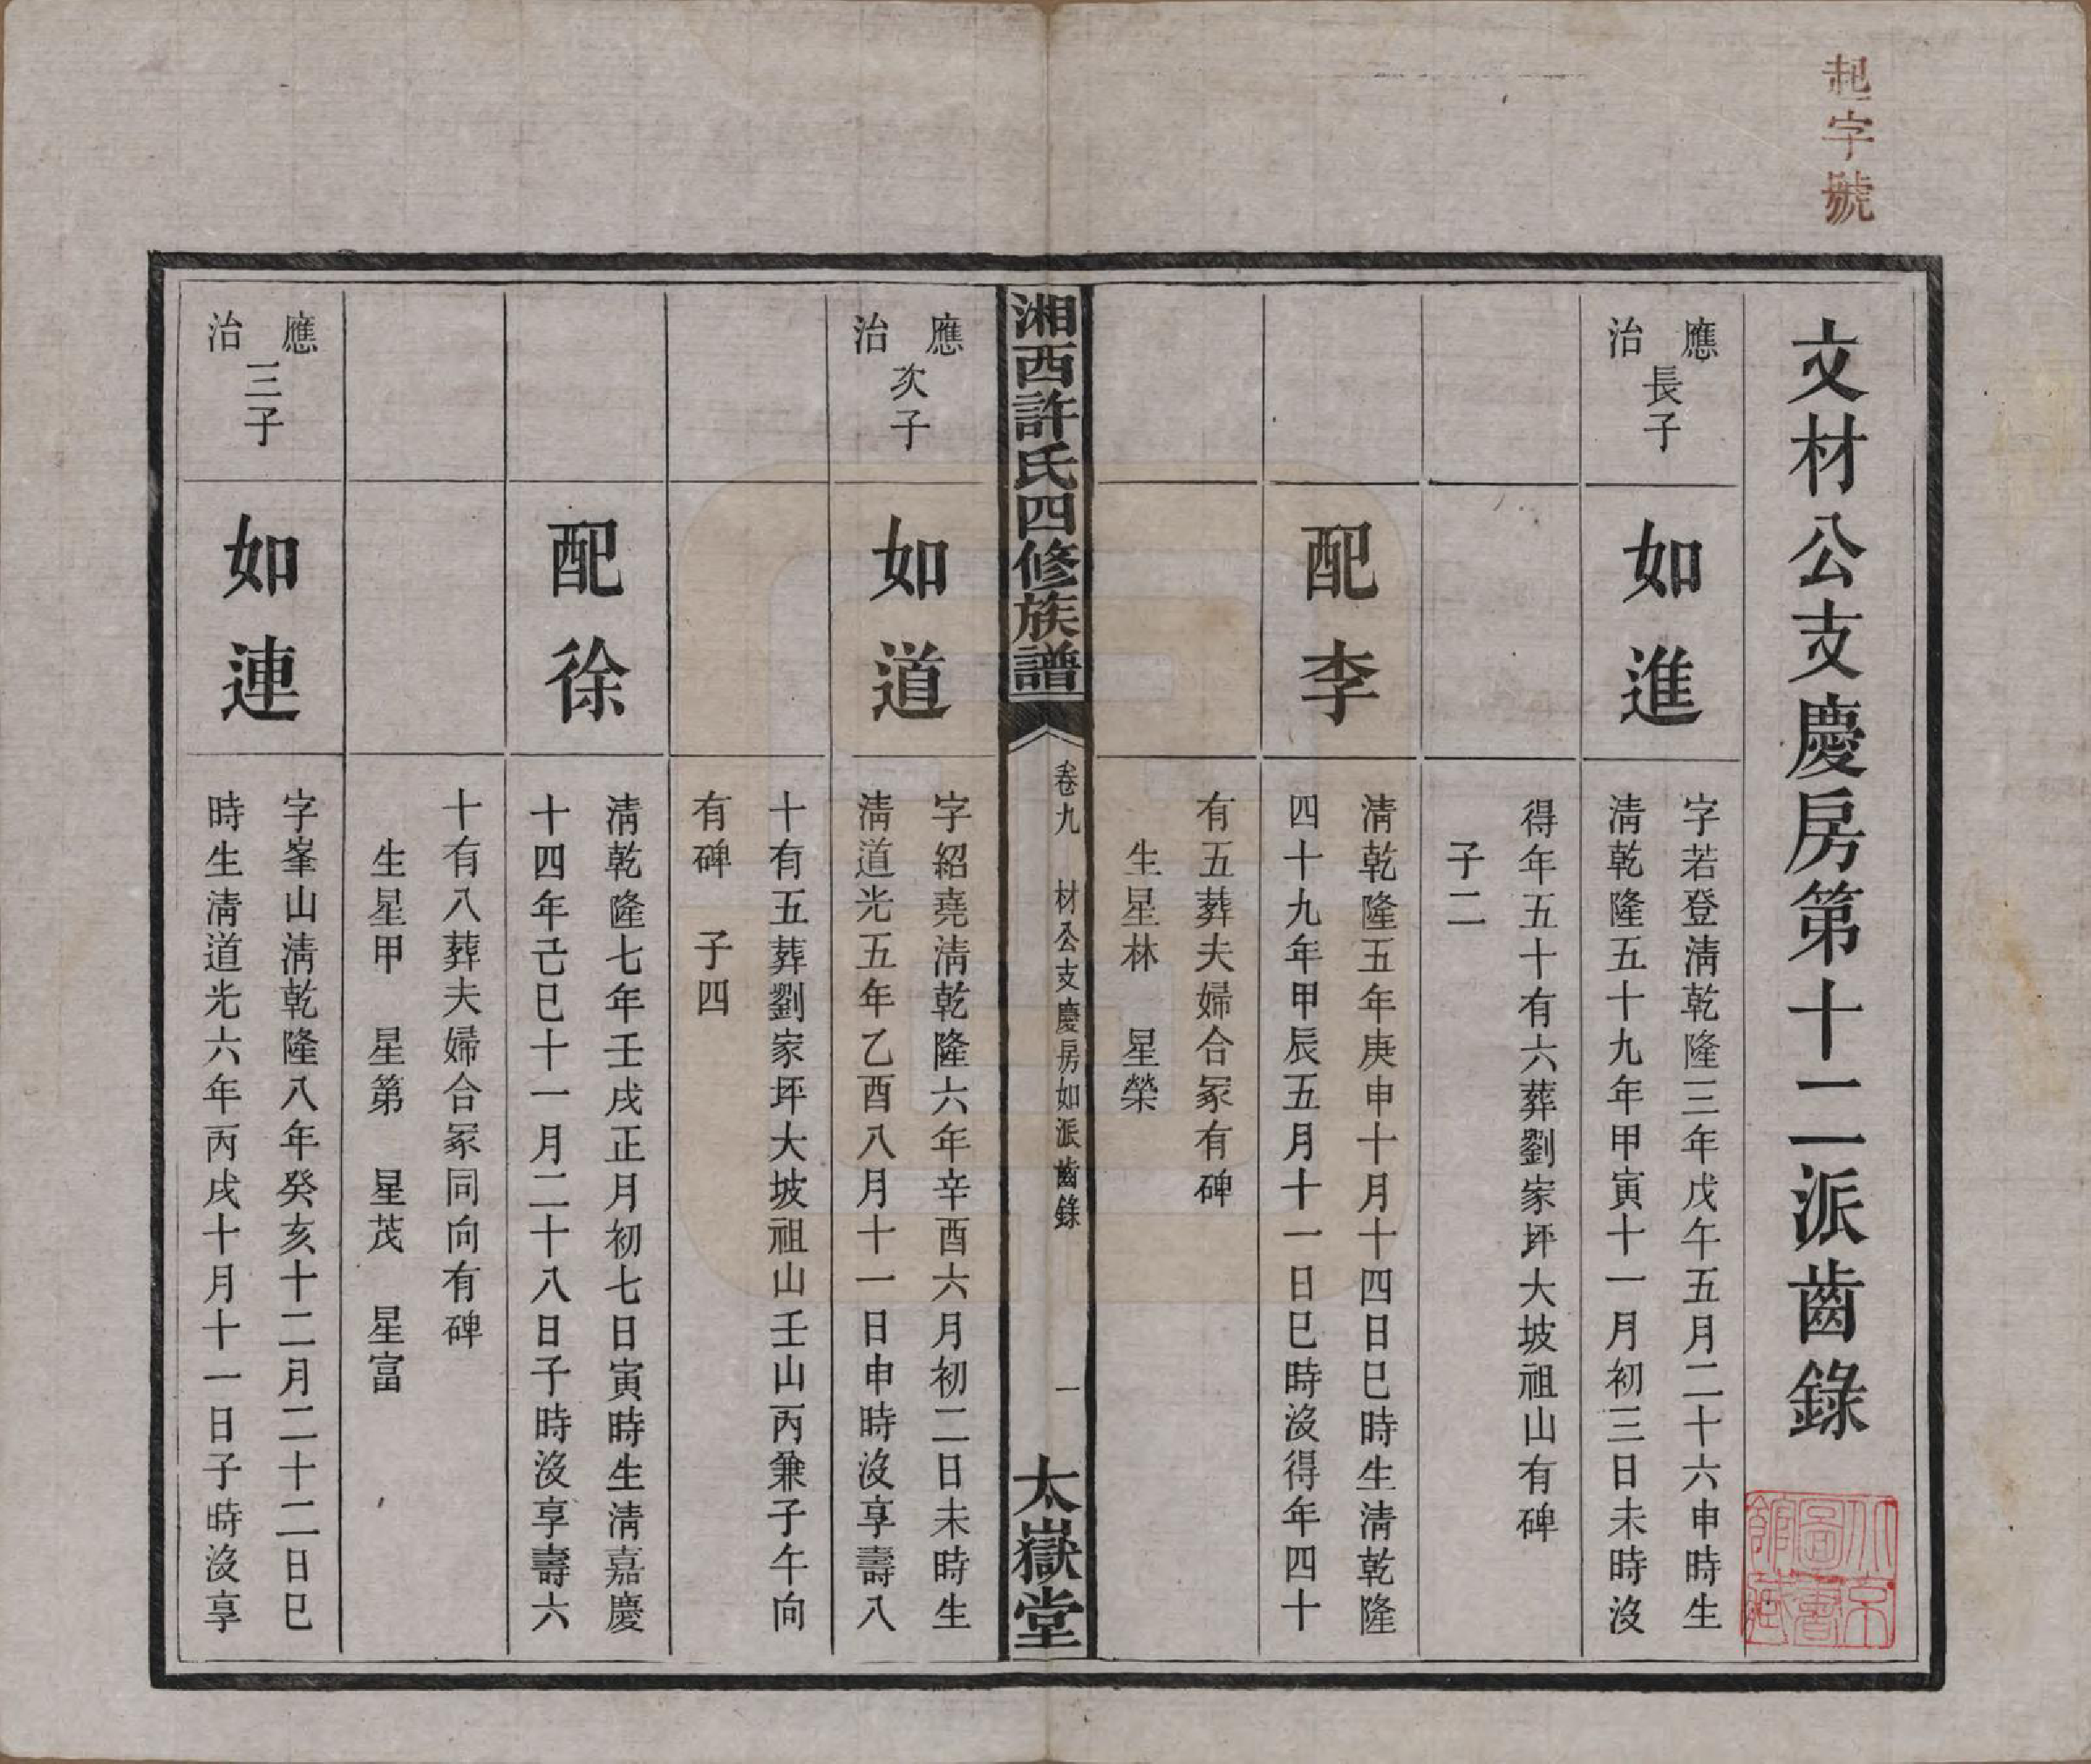 起字號
文材公支慶房第十二派齒錄
應治長子
如進
字若登淸乾隆三年戊午五月二十六申時生
淸乾隆五十九年甲寅十一月初三日未時沒
得年五十有六葬劉家坪大坡祖山有碑
子二
配李
淸乾隆五年庚申十月十四日巳時生淸乾隆
四十九年甲辰五月十一日巳時沒得年四十
有五葬夫婦合冢有碑
生星林　星榮
湘西許氏四修族譜
卷九　材公支慶房如派齒錄
一
太嶽堂
應治次子
如道
字紹堯淸乾隆六年辛酉六月初二日未時生
淸道光五年乙酉八月十一日申時沒享壽八
十有五葬劉家坪大坡祖山壬山丙兼子午向
有碑　子四
配徐
淸乾隆七年壬戌正月初七日寅時生淸嘉慶
十四年己巳十一月二十八日子時沒享壽六
十有八葬夫婦合冢同向有碑
生星甲　星第　星茂　星富
應治三子
如連
字峯山淸乾隆八年癸亥十二月二十二日巳
時生淸道光六年丙戌十月十一日子時沒享
北京
圖書
館藏